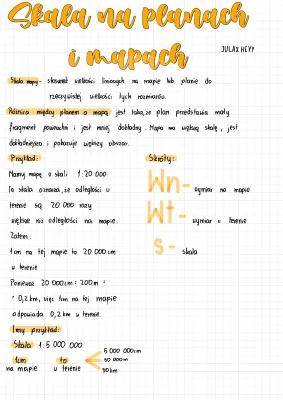 Skala na planach
i mapach
JULAX.HEYY
Skala mapy - stosunek wielkości liniowych na mapie lub planie do
rzeczywistej wielkości tych rozmiarów.
Różnica między planem a mapą jest taka, że plan przedstawia mały
fragment powierzchni i jest mniej dokładny. Mapa ma większą skalę, jest
dokładniejsza i pokazuje większy obszar.
Przykład:
Mamy mapę o skali 1:20 000
Ta skala oznacza, że odległości w
terenie są 20 000 razy
większe niż odległości na mapie.
Zatem:
1cm na tej mapie to 20 000 cm
w terenie
Ponieważ 20 000cm = 200m =
= 0,2km, więc 1cm na tej mapie
odpowiada 0,2 km w terenie.
Inny przykład:
Skala 1:5 000 000
1cm to
na mapie w terenie
5 000 000cm
50 000m
50km
Skróty:
Wm - wymiar na mapie
Wt - wymiar w terenie
s - skala